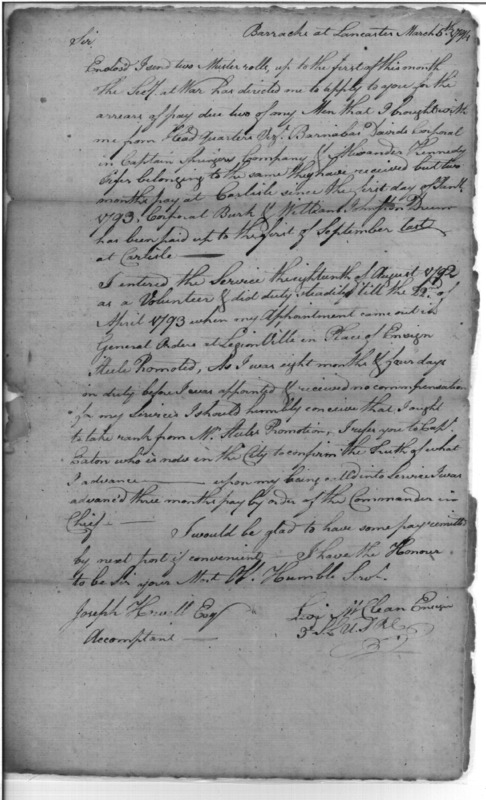 Barracks at Lancaster March 5th 1794
Sir,
Enclosd I send two Muster rolls, up to the first of this month
The Secy. at War has directed me to apply to you for the
arrears of pay due two of my Men that I brought with
me from Head Quarters Vizt. Barnabas Davids Corporal
in Captain Company & Alexander Kennedy
Fifer belonging to the same they have received but two
months pay at Carlisle since the first day of
1793. Corporal Burk & William
has been paid up to the first of September last
at Carlisle —
I entered the Service the eighteenth of August 1792
as a Volunteer & did duty steadily till the 22d of
April 1793 when my Appointment came out in
General Orders at Legion Ville in Place of Ensign
Steele Promoted, As I was eight months & four days
in duty before I was appointed & received no compensation
for my Services I should humbly conceive that I ought
to take rank from Mr. Steeles Promotion, I refer you to Capt.
Eaton who is now in the City to confirm the truth of what
I advance — upon my being calld into Service I was
advanc'd three months pay by order of the Commander in
Chief —
I would be glad to have some pay remitted
by next post if convenient — I have the Honour
to be Sir your Most Obt. Humble Servt.
Joseph Howell Esqr
Accomptant —
Levi McClean Ensign
3d S L U S